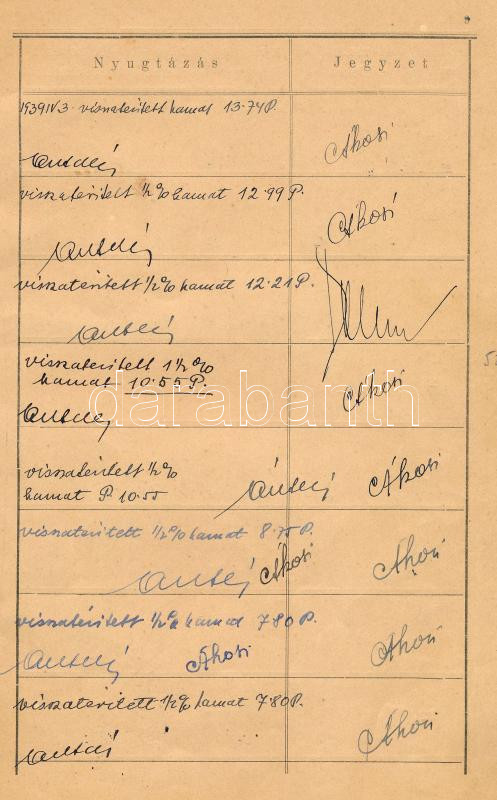 9
Nyugtázás Jegyzet
1939 IV 3. visszatérített kamat 13.74 P.
Ákosi
visszatérített 1/2% kamat 12.99 P.
Ákosi
visszatérített 1/2% kamat 12.21 P.
visszatérített 1 1/2%
kamat 10.55 P.
Ákosi
darabanth
visszatérített 1/2%
kamat P 10.55
Ákosi
visszatérített 1/2% kamat 8.75 P.
Ákosi Ákosi
visszatérített 1/2% kamat 7.80 P.
Ákosi Ákosi
visszatérített 1/2% kamat 7.80 P.
Ákosi